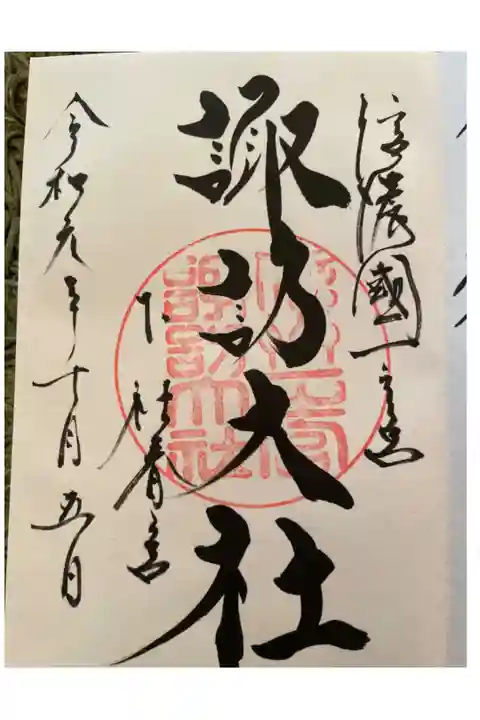 信濃國一之宮
諏訪大社
下社春宮
令和元年十月五日